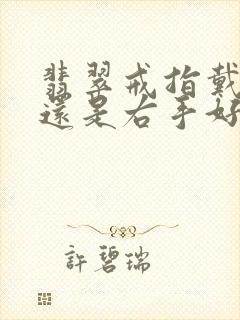 翡翠戒指戴
還是右手好
許碧瑞